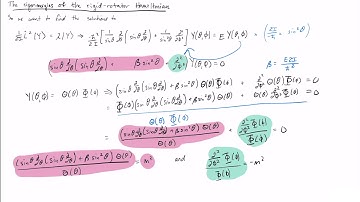 The eigenvalues of the rigid-rotator Hamiltonian
So we want to find the solutions to
1/2I L̂²(Y) = λ(Y) → -ħ²/2I [1/sinθ ∂/∂θ (sinθ ∂/∂θ) + 1/sin²θ ∂²/∂φ²] Y(θ,φ) = E Y(θ,φ)
(sinθ ∂/∂θ (sinθ ∂/∂θ) + β sin²θ + ∂²/∂φ²) Y(θ,φ) = 0 β = 2IE/ħ²
Y(θ,φ) = Θ(θ) Φ(φ) → Φ(φ)(sinθ ∂/∂θ (sinθ ∂/∂θ) + β sin²θ) Θ(θ) + Θ(θ) ∂²/∂φ² Φ(φ) = 0
Θ(θ) Φ(φ)
= (sinθ ∂/∂θ (sinθ ∂/∂θ) + β sin²θ) Θ(θ) / Θ(θ) + ∂²/∂φ² Φ(φ) / Φ(φ) = 0
(sinθ ∂/∂θ (sinθ ∂/∂θ) + β sin²θ) Θ(θ) / Θ(θ) = m² and ∂²/∂φ² Φ(φ) / Φ(φ) = -m²